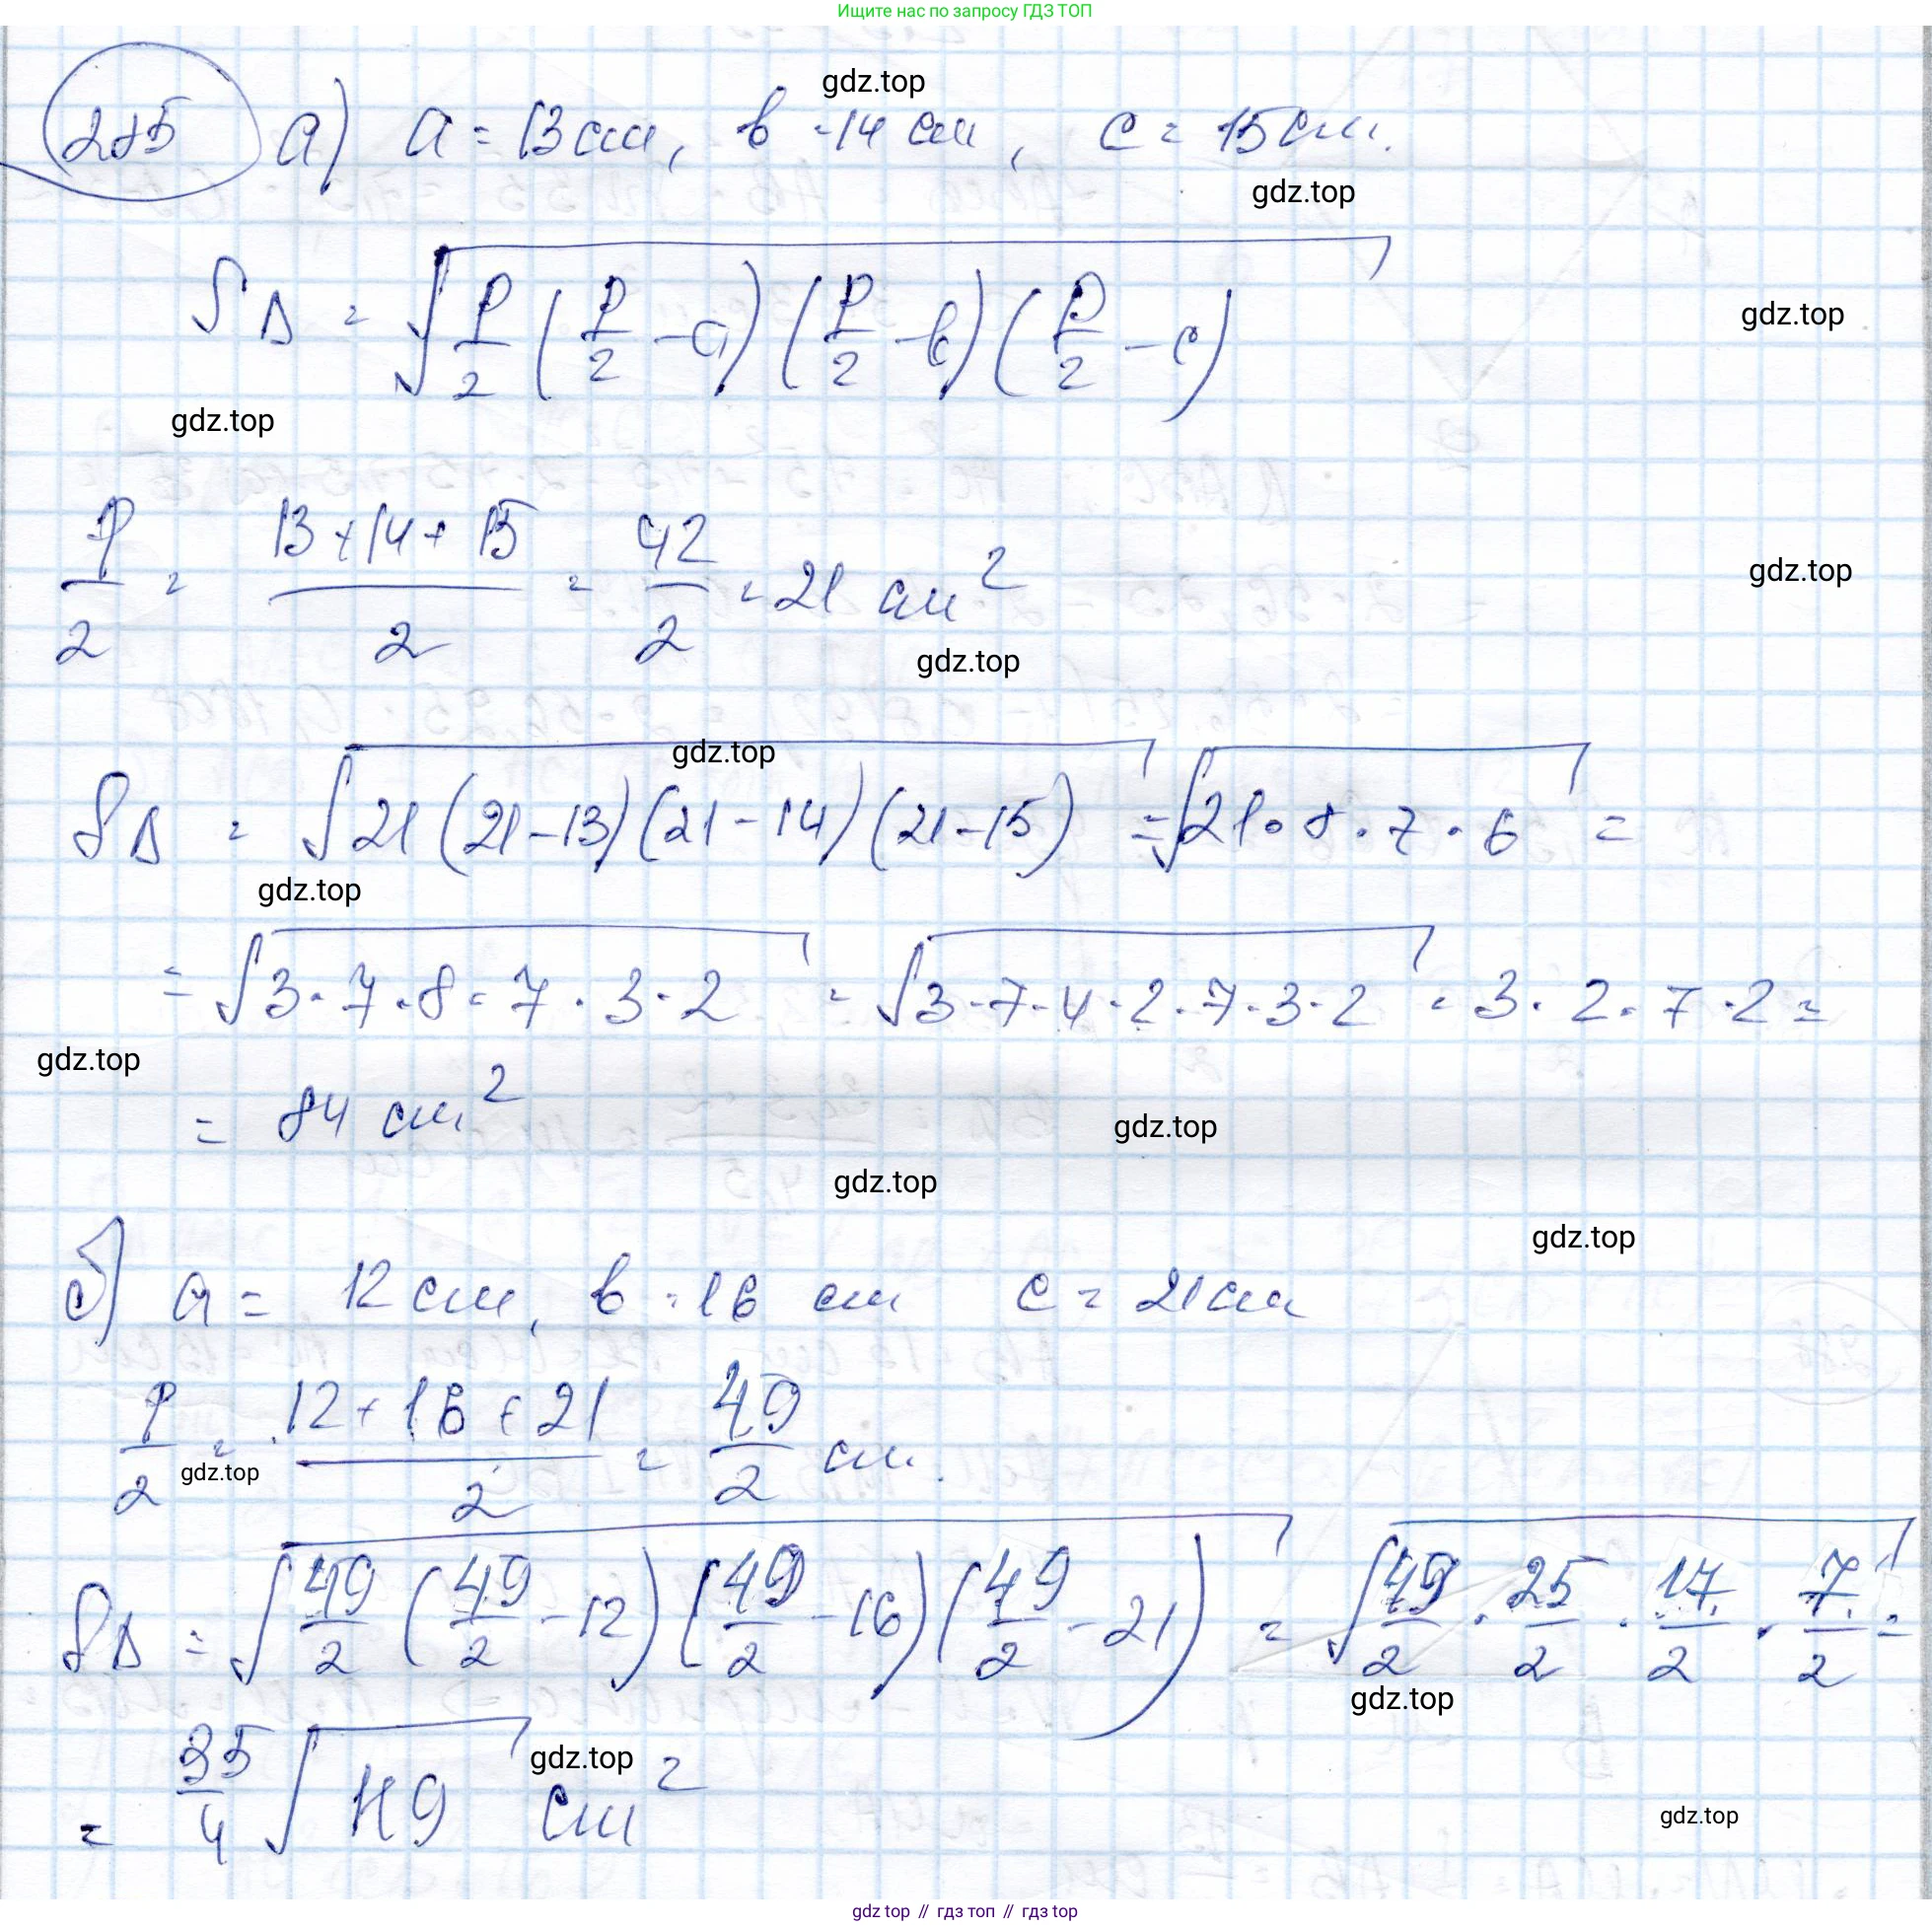 Ищите нас по запросу ГДЗ ТОП
gdz.top
285 а) a = 13 см, в = 14 см, c = 15 см.
gdz.top
S△ = √(P/2 (P/2 - a)(P/2 - в)(P/2 - c))
gdz.top
gdz.top
P/2 = (13 + 14 + 15)/2 = 42/2 = 21 см²
gdz.top
gdz.top
gdz.top
S△ = √(21(21-13)(21-14)(21-15)) = √(21·8·7·6) =
gdz.top
= √(3·7·8·7·3·2) = √(3·7·4·2·7·3·2) = 3·2·7·2 =
gdz.top
= 84 см²
gdz.top
gdz.top
gdz.top
б) a = 12 см, в = 16 см c = 21 см
P/2 = (12 + 16 + 21)/2 = 49/2 см.
gdz.top
S△ = √(49/2 (49/2 - 12)(49/2 - 16)(49/2 - 21)) = √(49/2 · 25/2 · 17/2 · 7/2) =
gdz.top
= 35/4 √119 см²
gdz.top
gdz.top
gdz.top // гдз топ // гдз top